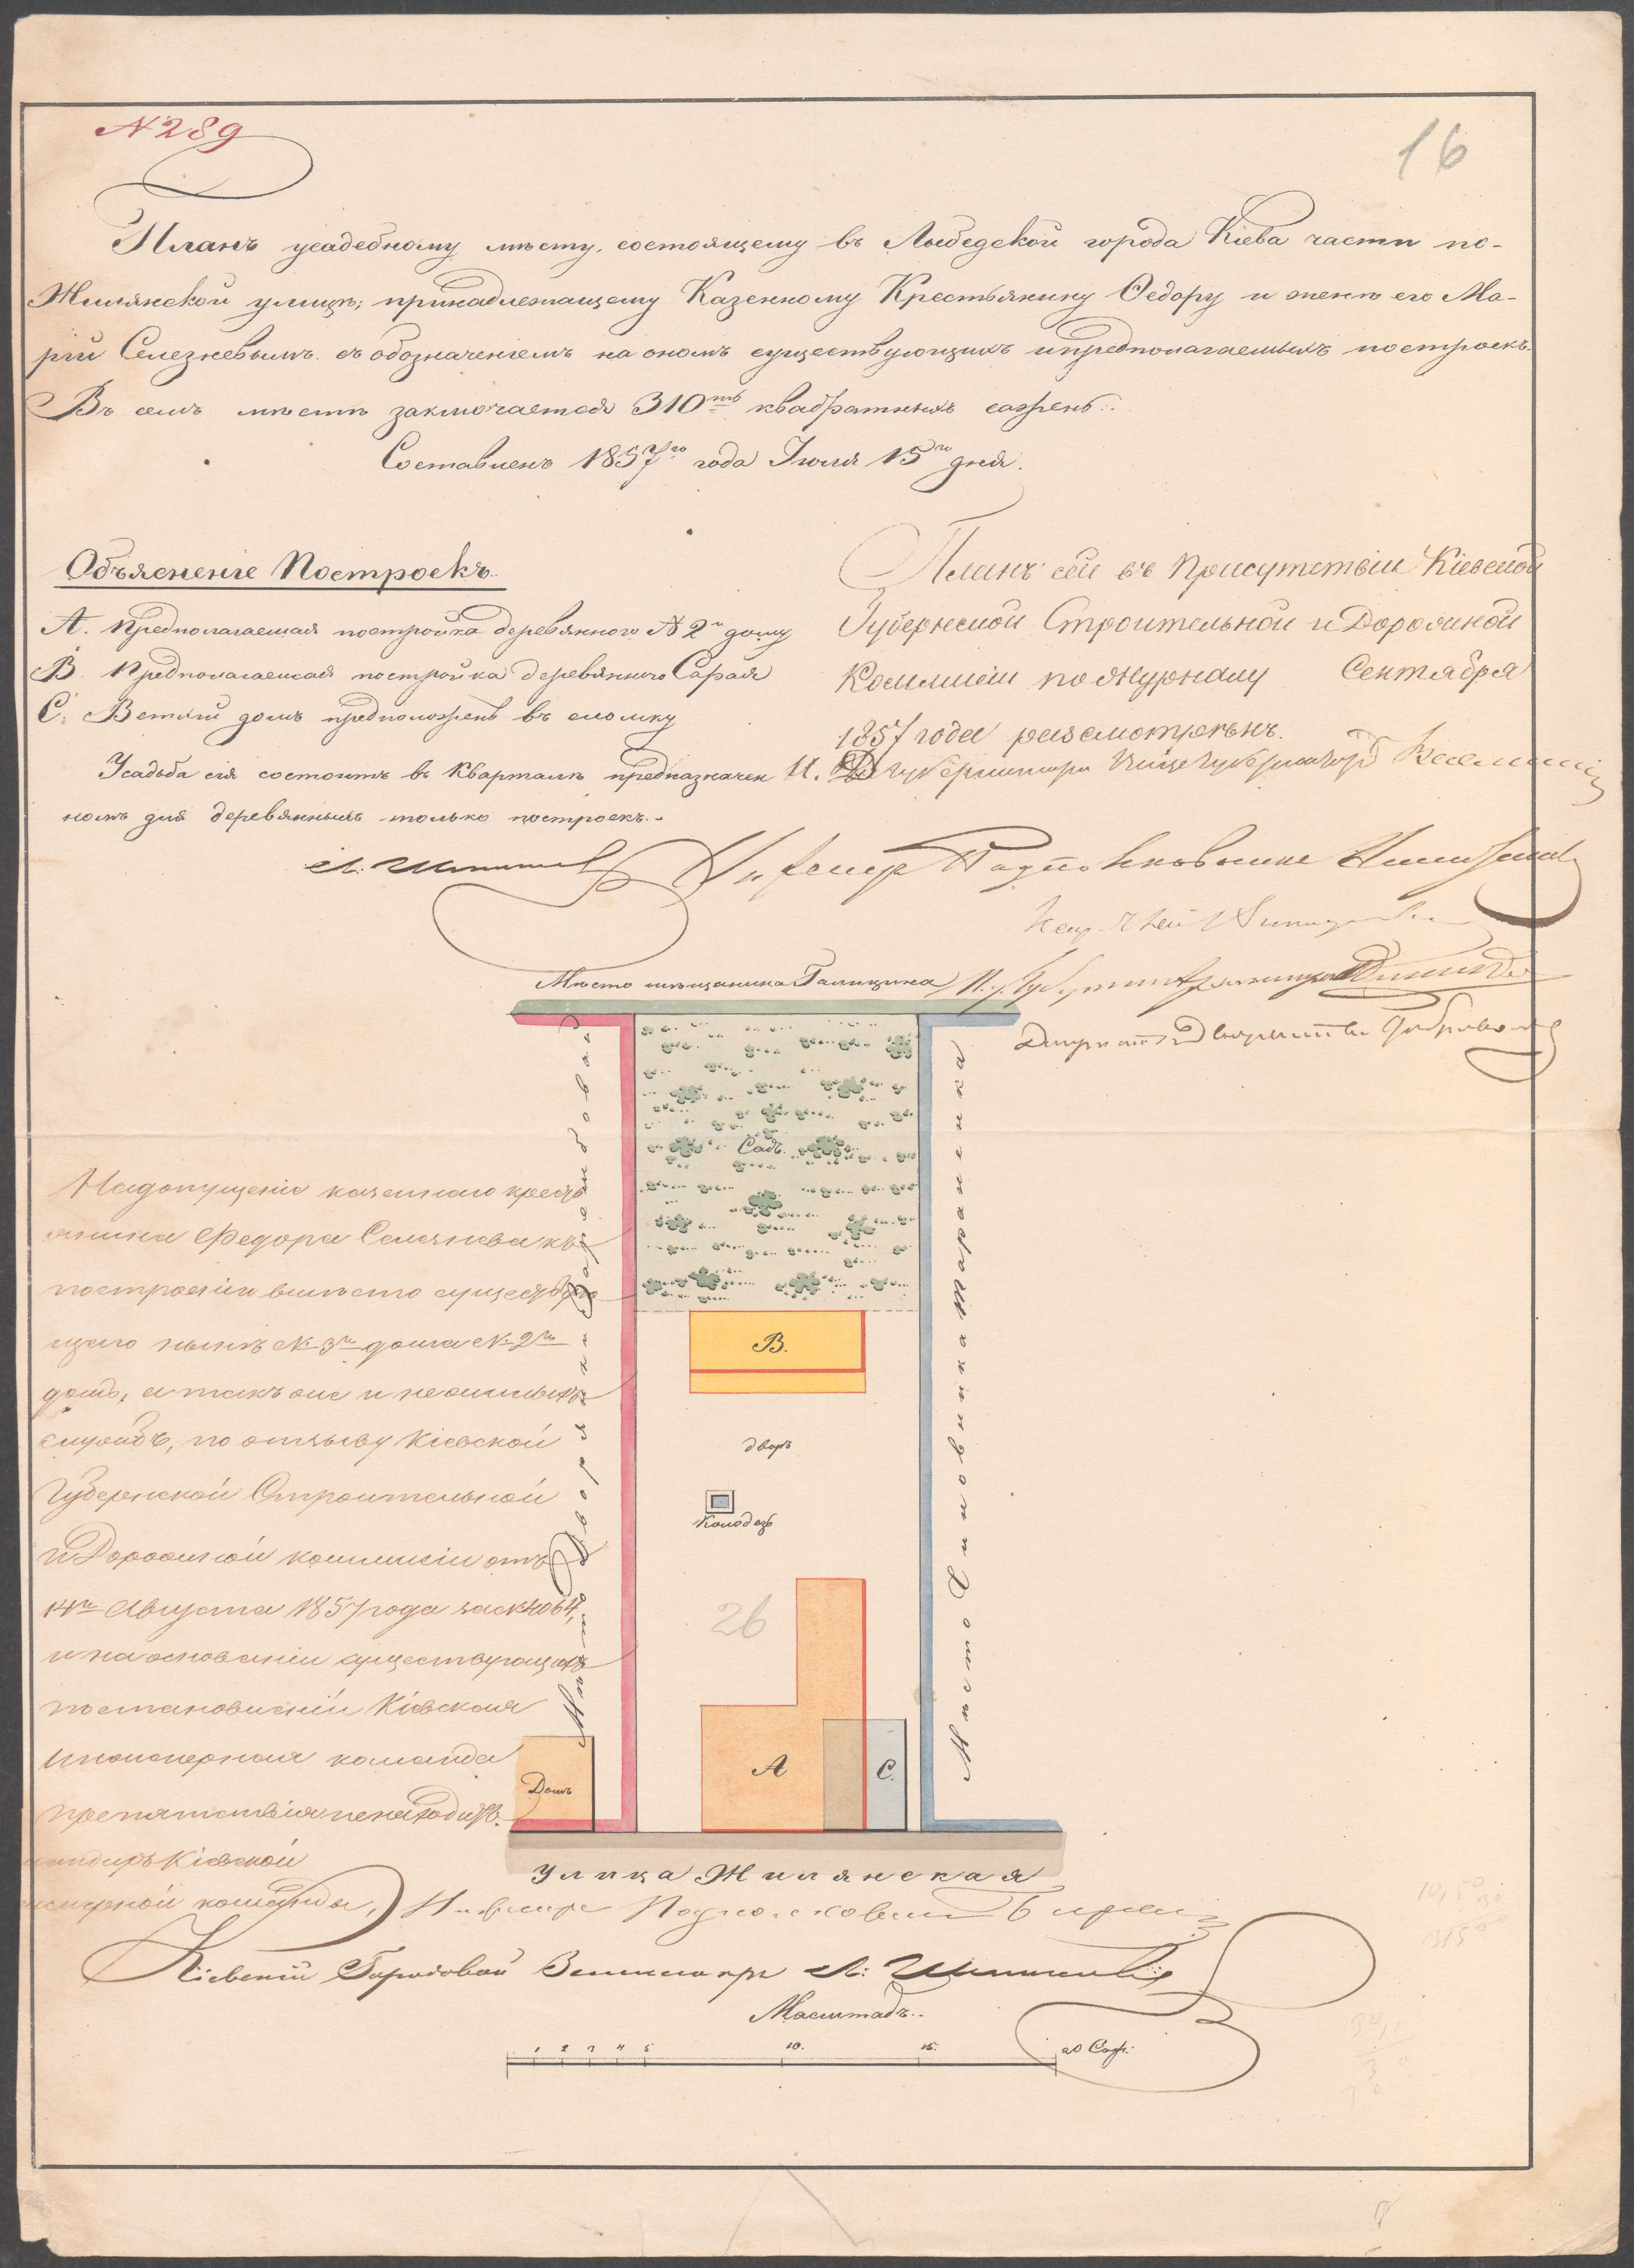 № 289
16
Планъ усадебному мѣсту, состоящему въ Лыбедской города Кіева части по-
Жилянской улицѣ; принадлежащему Казенному Крестьянину Ѳедору и женѣ его Ма-
ріи Селезневымъ съ обозначеніемъ на ономъ существующихъ и предполагаемыхъ построекъ.
Въ семъ мѣстѣ заключается 310ть квадратныхъ сажень.
Составленъ 1857го года Іюля 15го дня.
Объясненіе Построекъ.
А. Предполагаемая постройка деревянного № 2го дому
В. Предполагаемая постройка деревянного Сарая
С. Ветхій домъ предположенъ въ сломку
Усадьба сія состоитъ въ Кварталѣ предназначен
номъ для деревянныхъ только построекъ.
Планъ сей въ Присутствіи Кіевской
Губернской Строительной и Дорожной
Коммисіи по журналу Сентября
1857 года разсмотрѣнъ.
И. Д. Губернатора Вице Губернаторъ
Инженеръ Подполковникъ
Мѣсто мѣщанина Галицина
Депутатъ Дворянства
Мѣсто Дворянки
Мѣсто Чиновника Тараненка
Садъ.
В.
дворъ
Колодезь
26
А
С.
Домъ
Улица Жилянская
Надопущеніе казеннаго кресть
янина Федора Селезнева къ
построенію вмѣсто существую
щаго нынѣ № 3го дома № 2го
домъ, а такъ же и нежилыхъ
службъ, по отзыву Кіевской
Губернской Строительной
и Дорожной коммисіи отъ
14го Августа 1857 года за №
и на основаніи существующихъ
постановленій Кіевская
Инженерная команда
препятствія ненаходитъ.
Кіевской
команды, Инженеръ Подполковникъ
Кіевскій Городовой Землемѣръ
Масштабъ.
1 2 3 4 5 10. 15. 20 Саж.